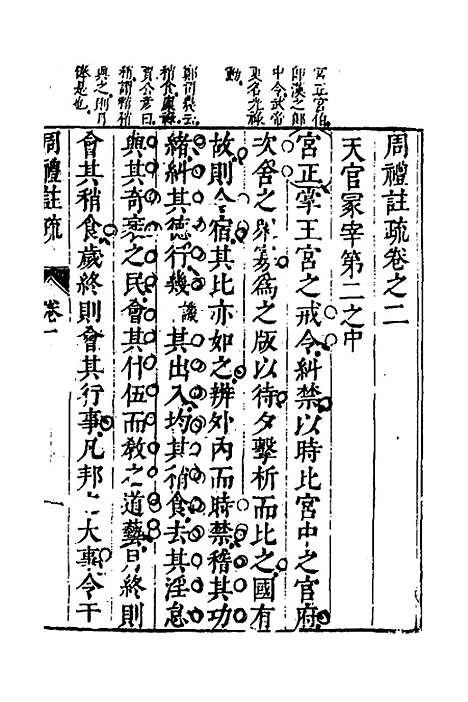 宮正宮伯
即漢之郎
中令武帝
更名光祿
勳
鄭司農云
稍食祿稟
賈公彥曰
稍謂稍稍
與之則月
俸是也
周禮註疏卷之二
天官冢宰第二之中
宮正掌王宮之戒令糾禁以時比宮中之官府
次舍之眾寡為之版以待夕擊柝而比之國有
故則令宿其比亦如之辨外內而時禁稽其功
緒糾其德行幾其出入均其稍食去其淫怠
與其奇衺之民會其什伍而教之道藝月終則
會其稍食歲終則會其行事凡邦之大事令于
周禮註疏 卷一